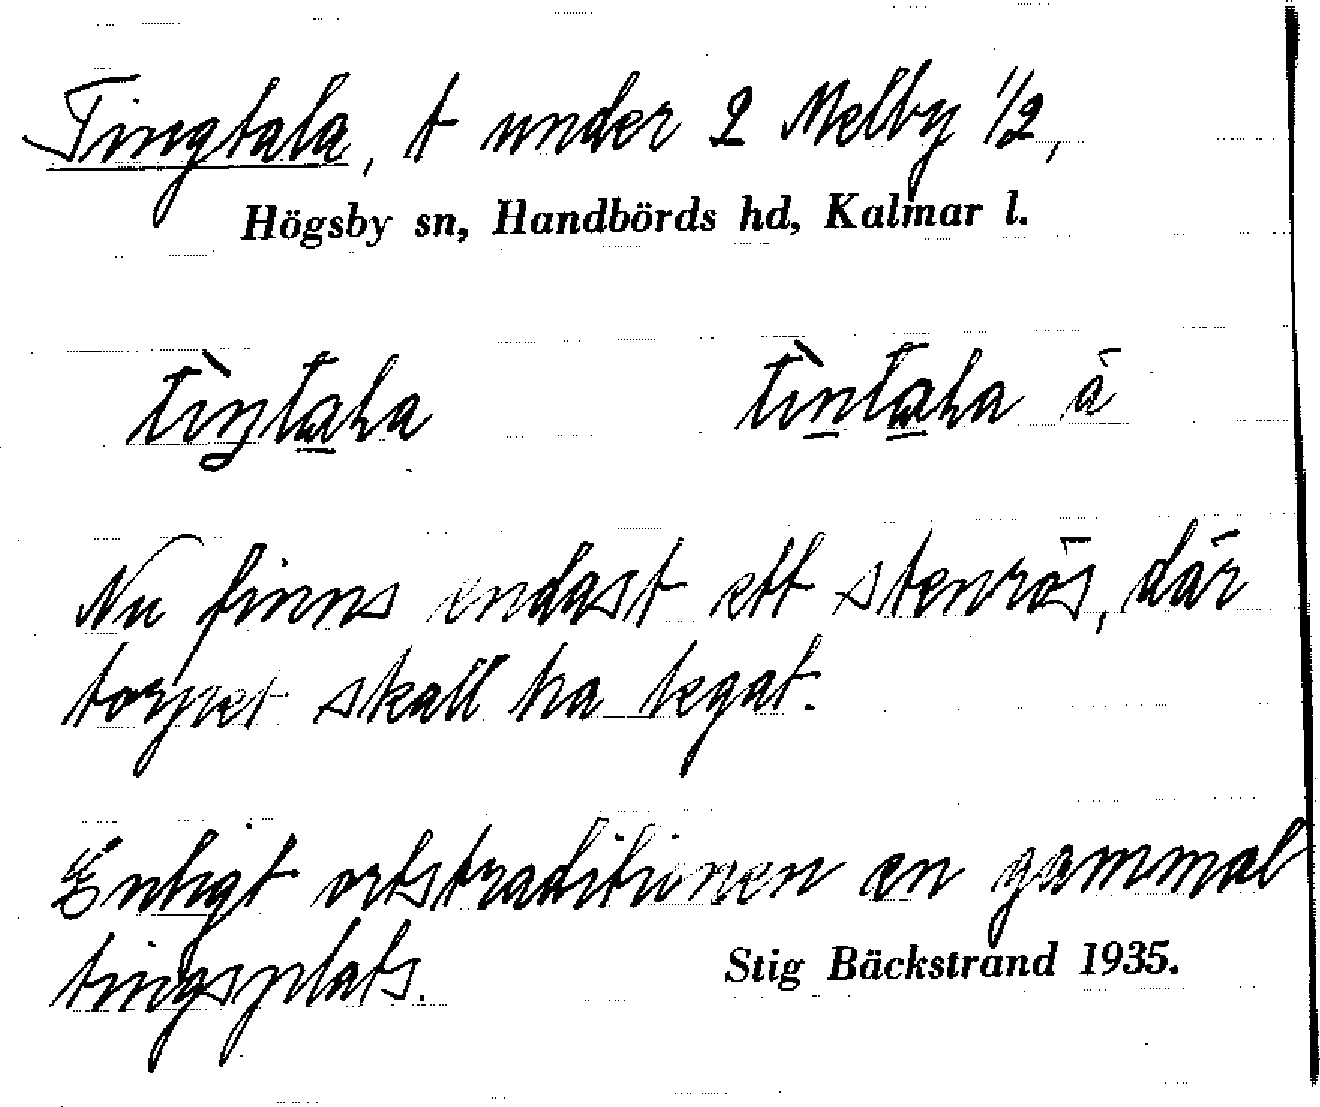 Tingtala, t under 2 Melby 1/2,
Högsby sn, Handbörds hd, Kalmar l.
Nu finns endast ett stenrös, där
torpet skall ha legat.
Enligt ortstraditionen en gammal
tingsplats.
Stig Bäckstrand 1935.